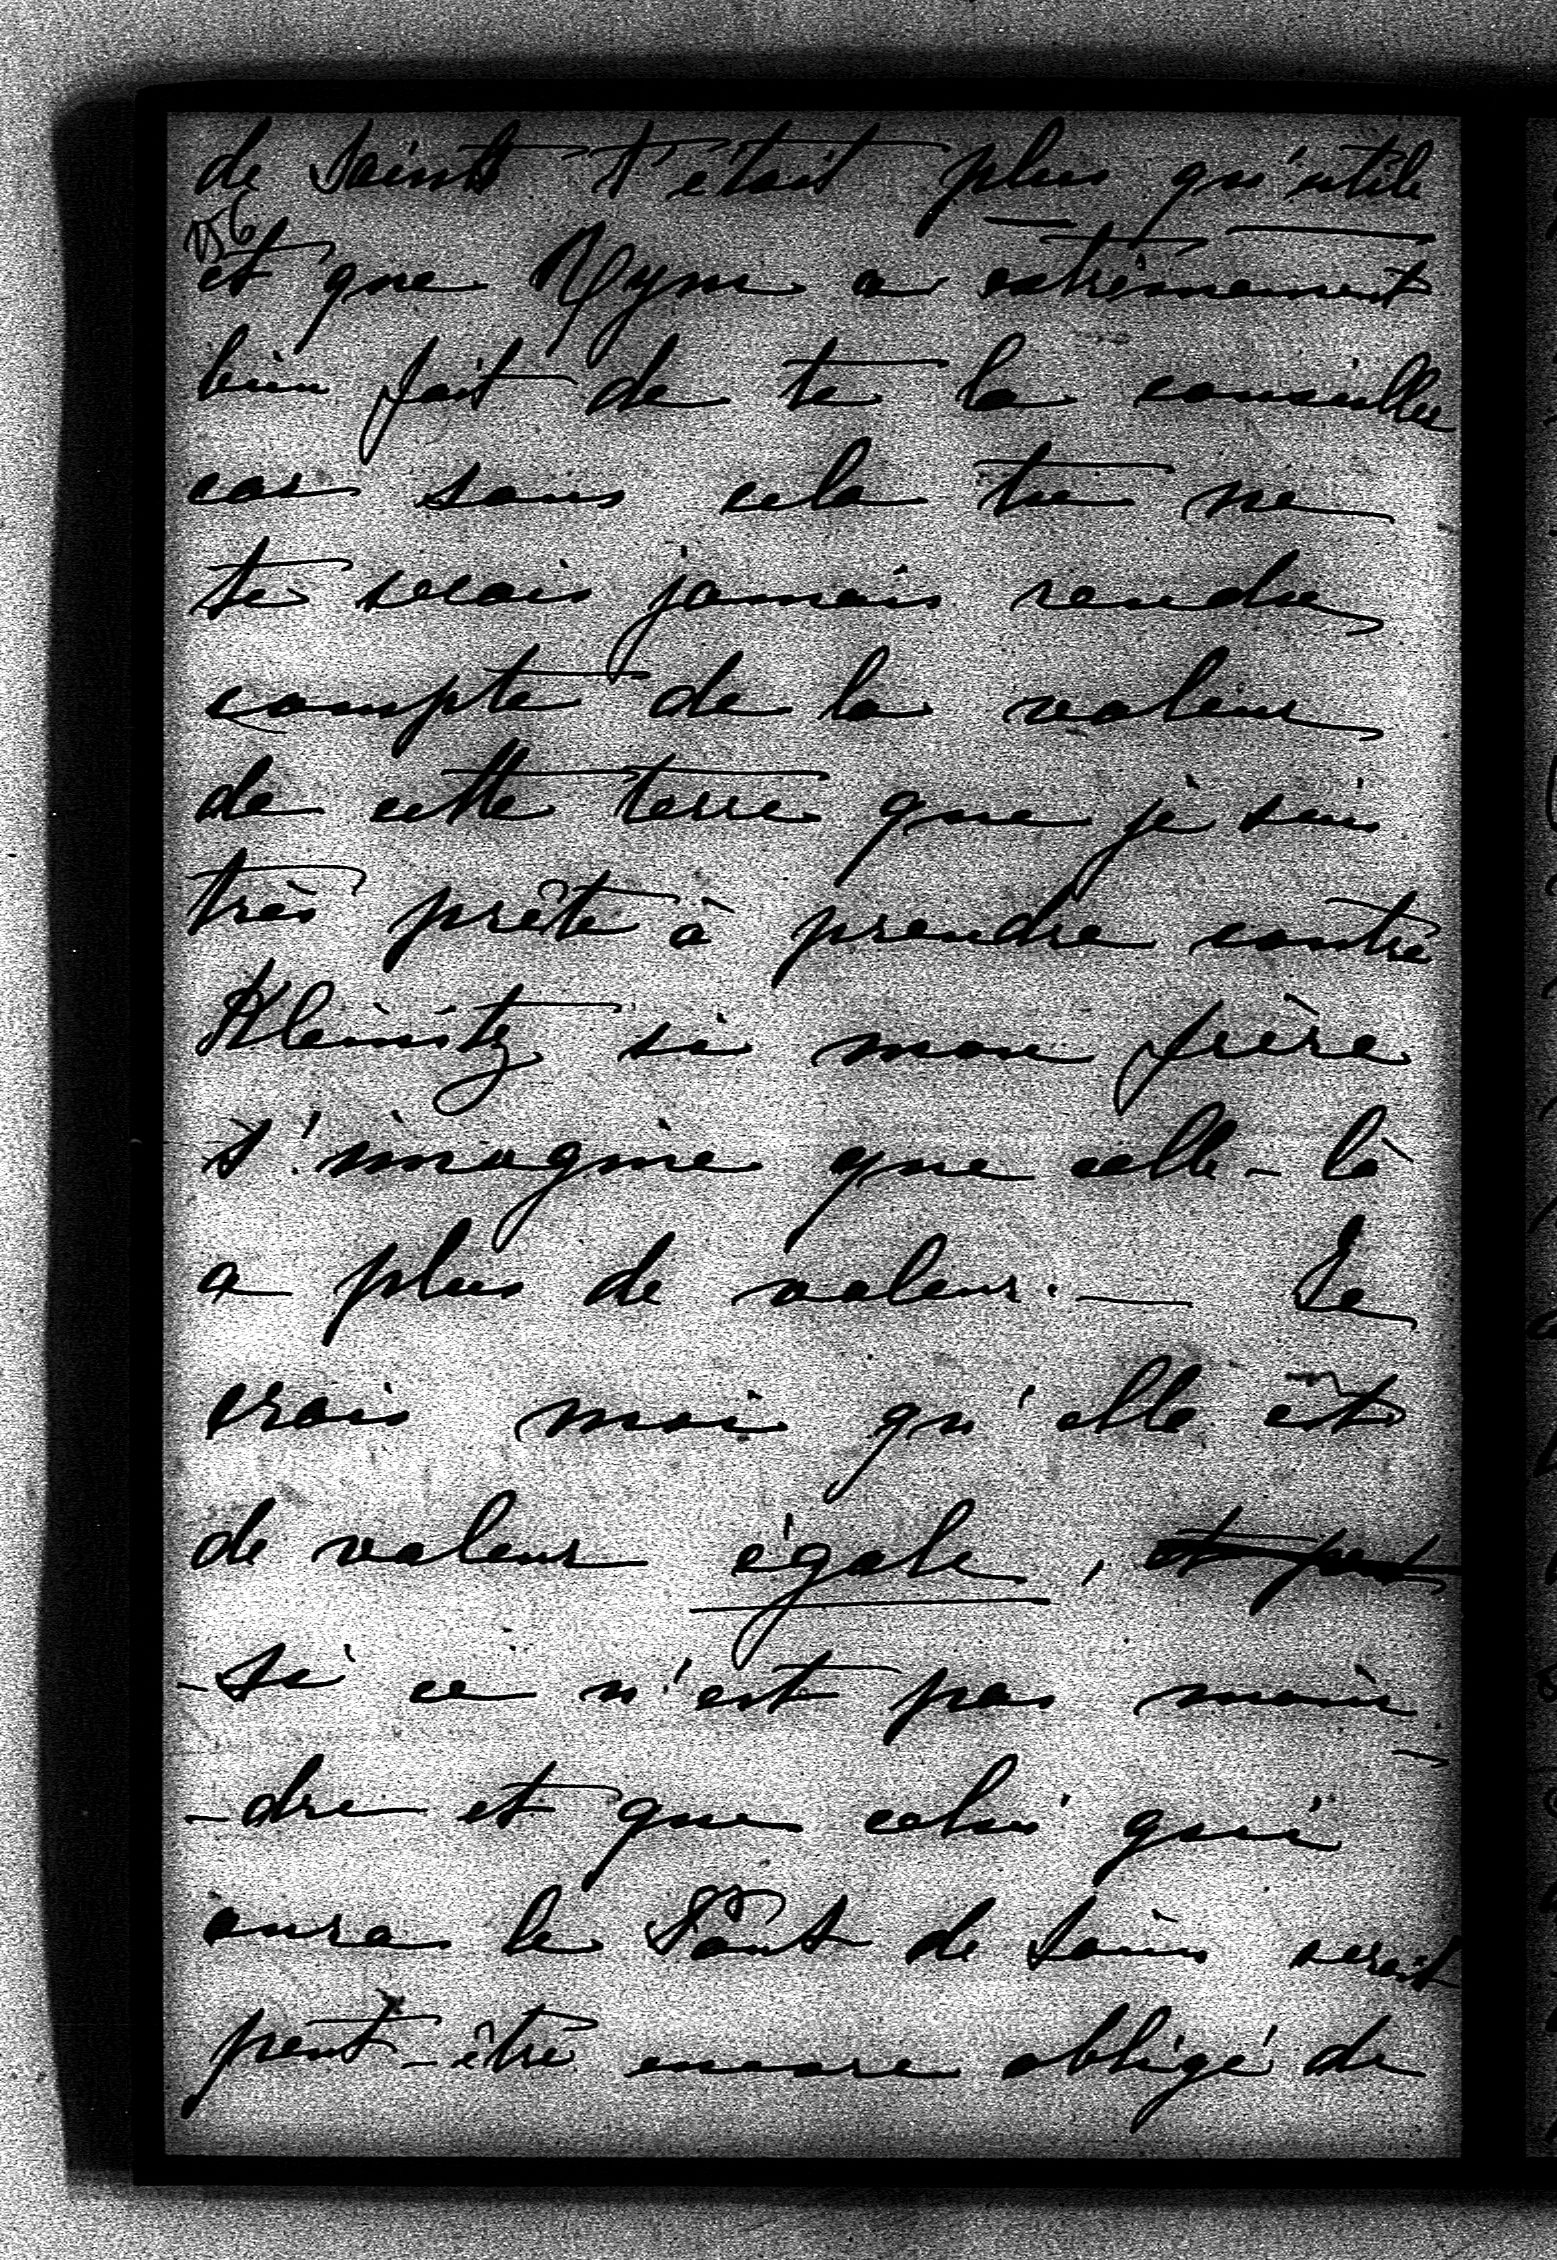 de Saint t'était plus qu'utile
et que Nym a extrêmement
bien fait de te la conseiller
car sans cela tu ne
te serais jamais rendu
compte de la valeur
de cette terre que je suis
très prête à prendre contre
Kleinitz si mon frère
s'imagine que celle-là
a plus de valeur. — Je
crois moi qu'elle est
de valeur égale, et peut
- si ce n'est pas moin
- dre et que celui qui
aura le de serait
peut-être encore obligé de